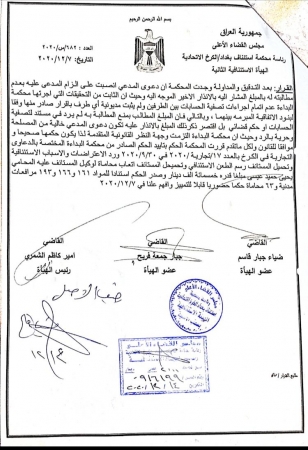 بسم الله الرحمن الرحيم
جمهورية العراق
مجلس القضاء الأعلى
رئاسة محكمة استئناف بغداد/الكرخ الاتحادية
الهيأة الاستئنافية الثانية
العدد : ٦٨٢/س/٢٠٢٠
التاريخ: ٢٠٢٠/١٢/٧
القرار: بعد التدقيق والمداولة وجدت المحكمة ان دعوى المدعي انصبت على الزام المدعى عليه بعدم
مطالبته له بالمبلغ المشار اليه بالانذار الاخير الموجه اليه وحيث ان الثابت من التحقيقات التي اجرتها محكمة
البداءة عدم اتمام اجراءات تصفية الحسابات بين الطرفين ولم يثبت مديونية أي طرف باقرار صادر منها وفقا
للاتفاقية المبرمة بينهما ، وبالتالي فان المبلغ المطالب بمنع المطالبة به لم يرد في مستند لتصفية
الحسابات او حكم قضائي بل اقتصر ذكرتك المبلغ بالانذار عليه تكون دعوى المدعي خالية من المصلحة
وحرية بالرد وحيث ان محكمة البداءة التزمت وجهة النظر القانونية المتقدمة لذا يكون حكمها صحيحا و
موافقا للقانون ولكل ماتقدم قررت المحكمة الحكم بتأييد الحكم الصادر من محكمة البداءة المختصة بالدعاوى
التجارية في الكرخ بالعدد ١٧/تجارية/٢٠٢٠ في ٢٠٢٠/٩/٣٠ ورد الاعتراضات والاسباب الاستئنافية
وتحميل المستأنف رسم الطعن الاستئنافي وتحميل المستأنف اتعاب محاماة لوكيل المستأنف عليه المحامي
يحيى حميد عيسى مبلغا قدره خمسمائة الف دينار وصدر الحكم استنادا للمواد ١٦١ و١٦٦ و١٩٣ مرافعات
مدنية و٦٣ محاماة حكما حضوريا قابلا للتمييز وافهم علنا في ٢٠٢٠/١٢/٧
القاضي القاضي القاضي
ضياء جبار قاسم جبار جمعة فريح امير كاظم الشمري
عضو الهيأة عضو الهيأة رئيس الهيأة